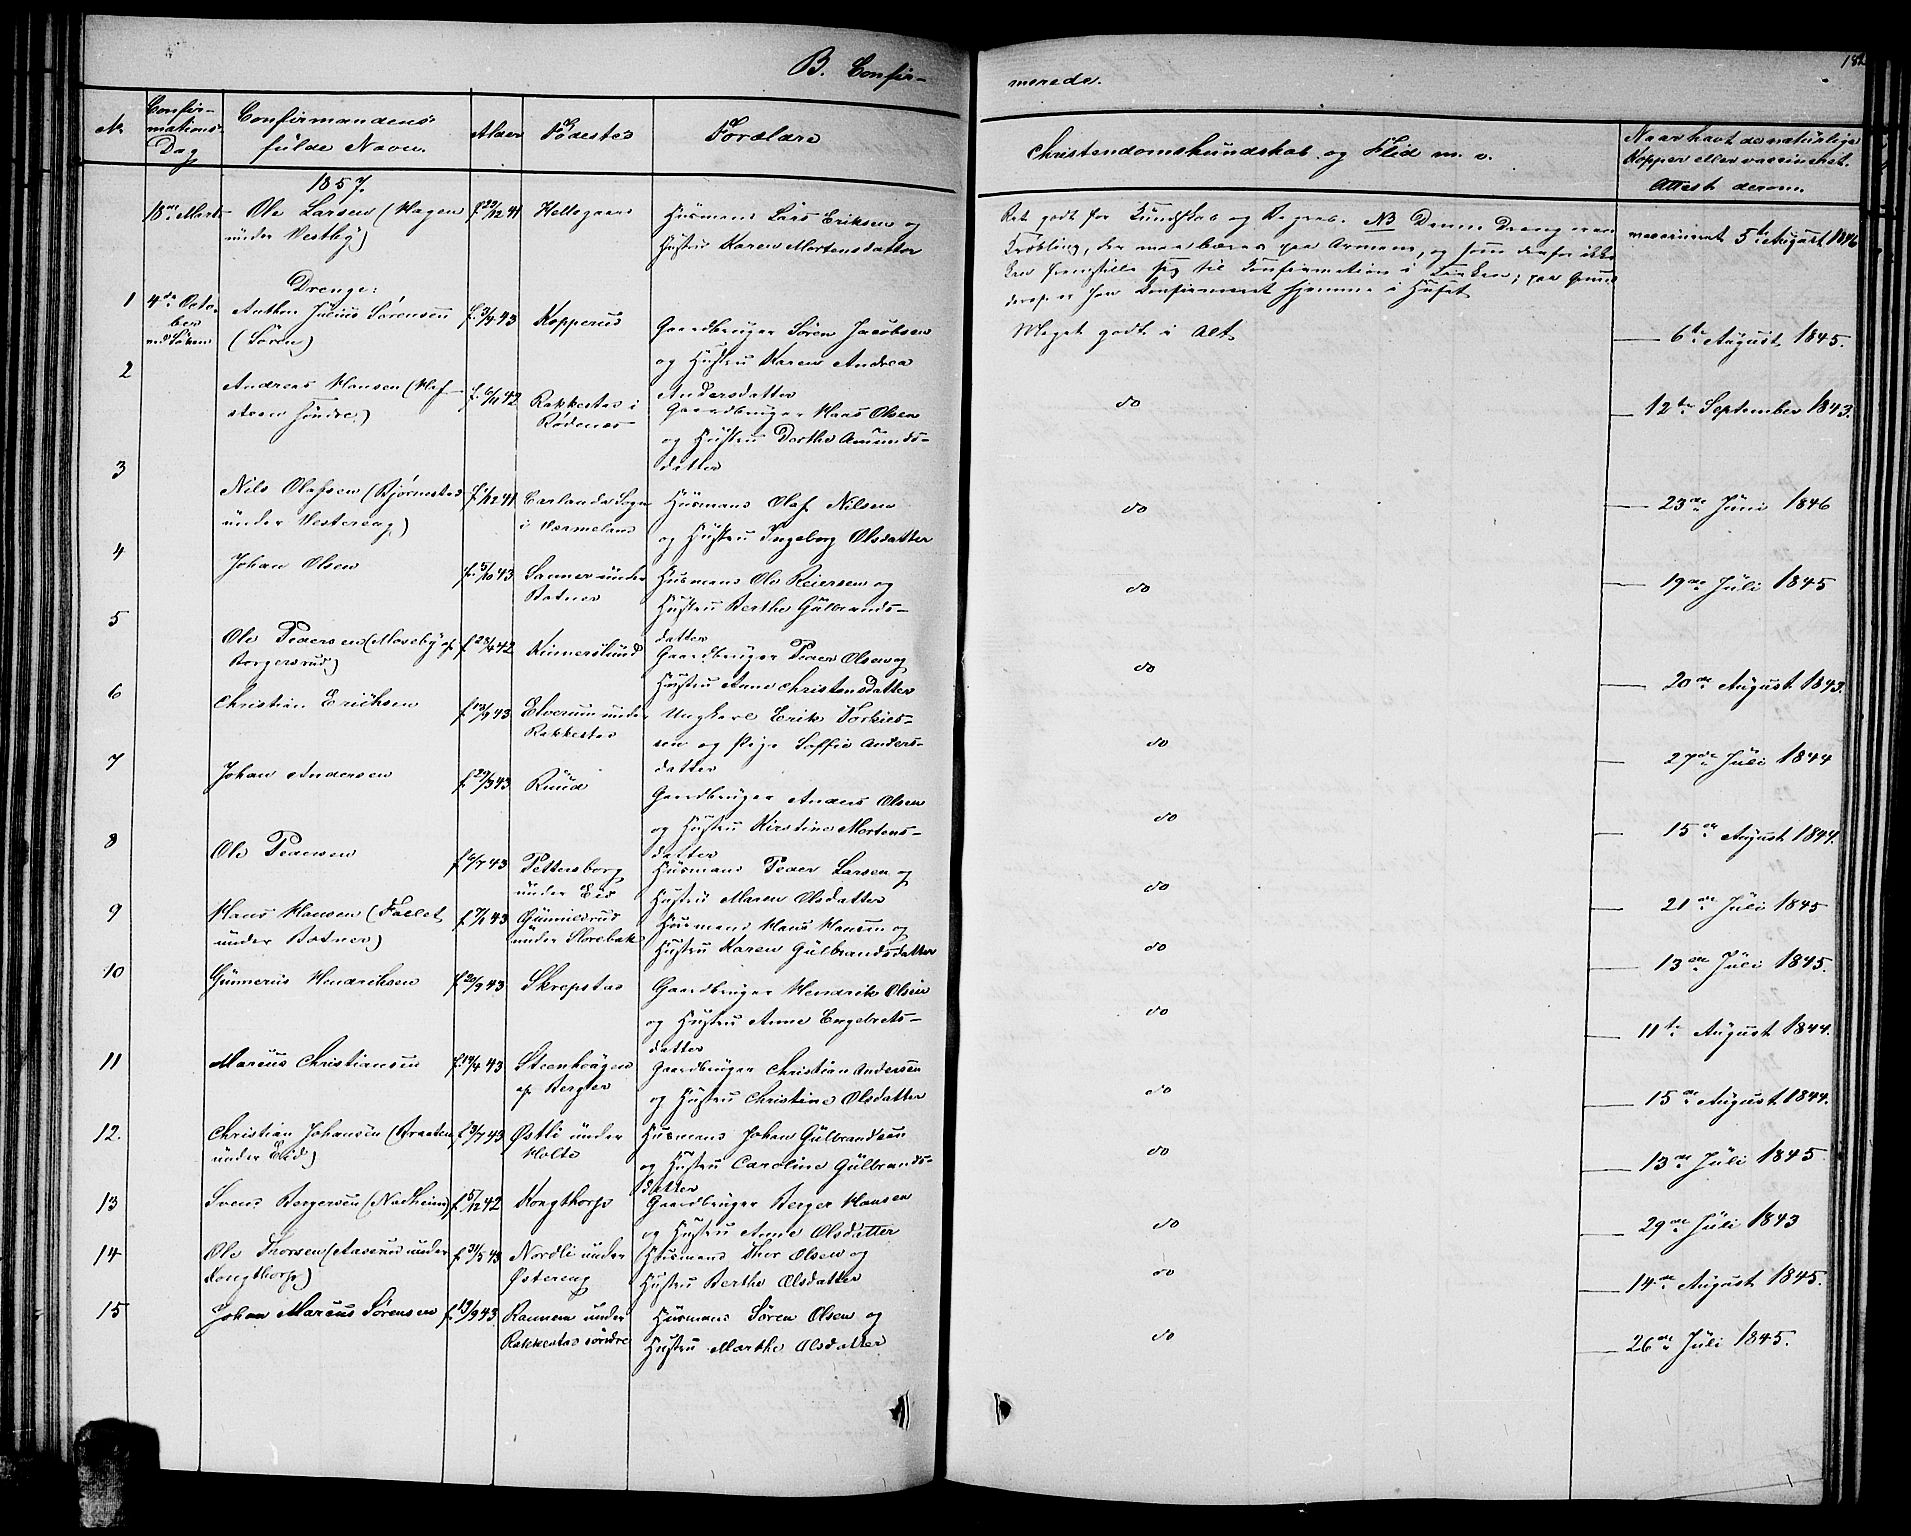 B. Confir-
merede.
182
No
Confir-
mations-
Dag
Confirmandens
fulde Navn.
Alder
Fødested
Forældre
Christendomskundskab og Flid m. v.
Naar havt de naturlige
Kopper eller vaccineret.
Attest derom.
1857.
18de Marts
Ole Larsen (Hagen
under Vestby)
f. 22/12 41
Hellegaard
Husmand Lars Eriksen og
Hustru Karen Mortensdatter
Ret godt for Kundskab og Begreb. NB Denne Dreng er en
Krøbling, der maa bæres paa Armene, og som derfor ikke
kan fremstille sig til Confirmation i Kirken; paa Grund
deraf er han Confirmeret hjemme i Huset
vaccineret 5te August 1846
Drenge:
1
4de Octo-
ber
Anthon Julius Sørensen
(Søren)
f. 3/4 43
Kopperud
Gaardbruger Søren Jacobsen
og Hustru Karen Andrea
Andersdatter
Meget godt i Alt
6te August 1845.
2
Andreas Hansen (Haf-
steen Søndre)
f. 6/11 42
Rakkestad i
Rødenæs
Gaardbruger Hans Olsen
og Hustru Dorthe Amunds-
datter
do
12te September 1843.
3
Nils Olafsen (Bjørnestad
under Vestereng)
f. 1/12 41
Carlanda Sogn
i Værmeland
Husmand Olaf Nilsen
og Hustru Ingeborg Olsdatter
do
23de Juni 1846
4
Johan Olsen
f. 5/10 43
Sanner under
Botner
Husmand Ole Reiersen og
Hustru Berthe Gulbrands-
datter
do
19de Juli 1845
5
Ole Pedersen (Moseby af
Borgersrud)
f. 28/4 42
Kinnerslund
Gaardbruger Peder Olsen og
Hustru Anne Christensdatter
do
20de August 1843.
6
Christian Erichsen
f. 13/9 43
Elverum under
Rakkestad
Ungkarl Erik Torkils-
sen og Pige Soffie Anders-
datter
do
27de Juli 1844
7
Johan Andersen
f. 29/3 43
Ruud
Gaardbruger Anders Olsen
og Hustru Kirstine Mortens-
datter
do
15de August 1844.
8
Ole Pedersen
f. 6/7 43
Pettersborg
under Eid
Husmand Peder Larsen og
Hustru Maren Olsdatter
do
21de Juli 1845
9
Hans Hansen (Fallet
under Botner)
f. 7/1 43
Gunnildsrud
under Skorebak
Husmand Hans Hansen og
Hustru Karen Gulbrandsdatter
do
13de Juli 1845.
10
Gunnerus Hendriksen
f. 20/9 43
Skrepstad
Gaardbruger Hendrik Olsen
og Hustru Anne Engebrets-
datter
do
11te August 1844.
11
Marcus Christiansen
f. 14/4 43
Steenhougen
af Bergter
Gaardbruger Christian Andersen
og Hustru Christine Olsdatter
do
15de August 1844.
12.
Christian Johansen (Braaten
under Eid)
f. 3/7 43
Østli under
Holte
Husmand Johan Gulbrandsen
og Hustru Caroline Gulbrands-
datter
do
13de Juli 1845
13
Svend Bergersen (Nadheim)
f. 5/12 42
Kongthorp
Gaardbruger Berger Hansen
og Hustru Anne Olsdatter
do
29de Juli 1843
14
Ole Thorsen (Aaserud under
Kongthorp)
f. 31/5 43
Nordli under
Østereng
Husmand Thor Olsen og
Hustru Berthe Olsdatter
do
14de August 1845.
15
Johan Marcus Sørensen
f. 19/9 43.
Rannem under
Rakkestad søndre
Husmand Søren Olsen og
Hustru Marthe Olsdatter
do
26de Juli 1845.